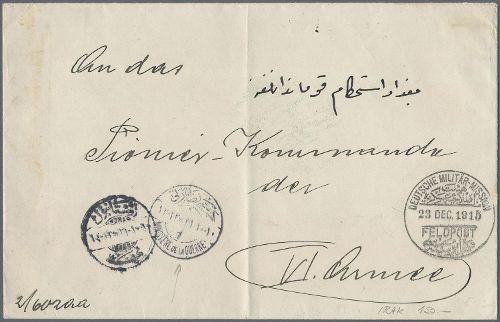 An das
بغداد استحکام قوماندانلغنه
Pionier-Kommando
der
VI. Armee
DEUTSCHE MILITÄR-MISSION
23 DEC. 1915
FELDPOST
MINISTÈRE DE LA GUERRE
IRAK 150.-